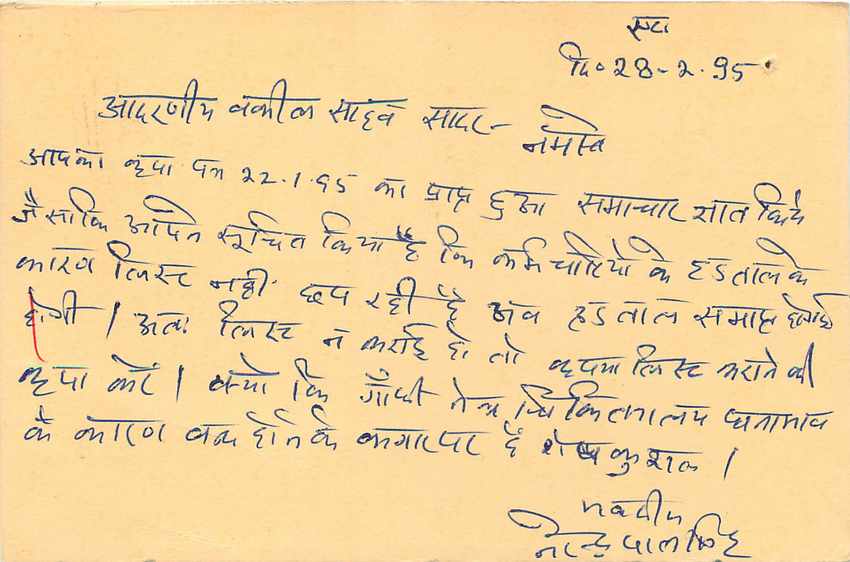 एटा
दि० 28-2-95
आदरणीय वकील साहव सादर-
नमस्ते
आपका कृपा पत्र 22.1.95 का प्राप्त हुआ समाचार ज्ञात किये
जैसाकि आपने सूचित किया है कि कर्मचारियो के हडताल के
कारण लिस्ट नही छप रही है अव हडताल समाप्त होगई
होगी । अतः लिस्ट न कराई हो तो कृपया लिस्ट कराने की
कृपा करें । क्यो कि गाँधी नेत्र चिकित्सालय धनाभाव
के कारण वन्द होने के कगार पर है शेष कुशल ।
भवदीय
नरेन्द्रपालसिंह